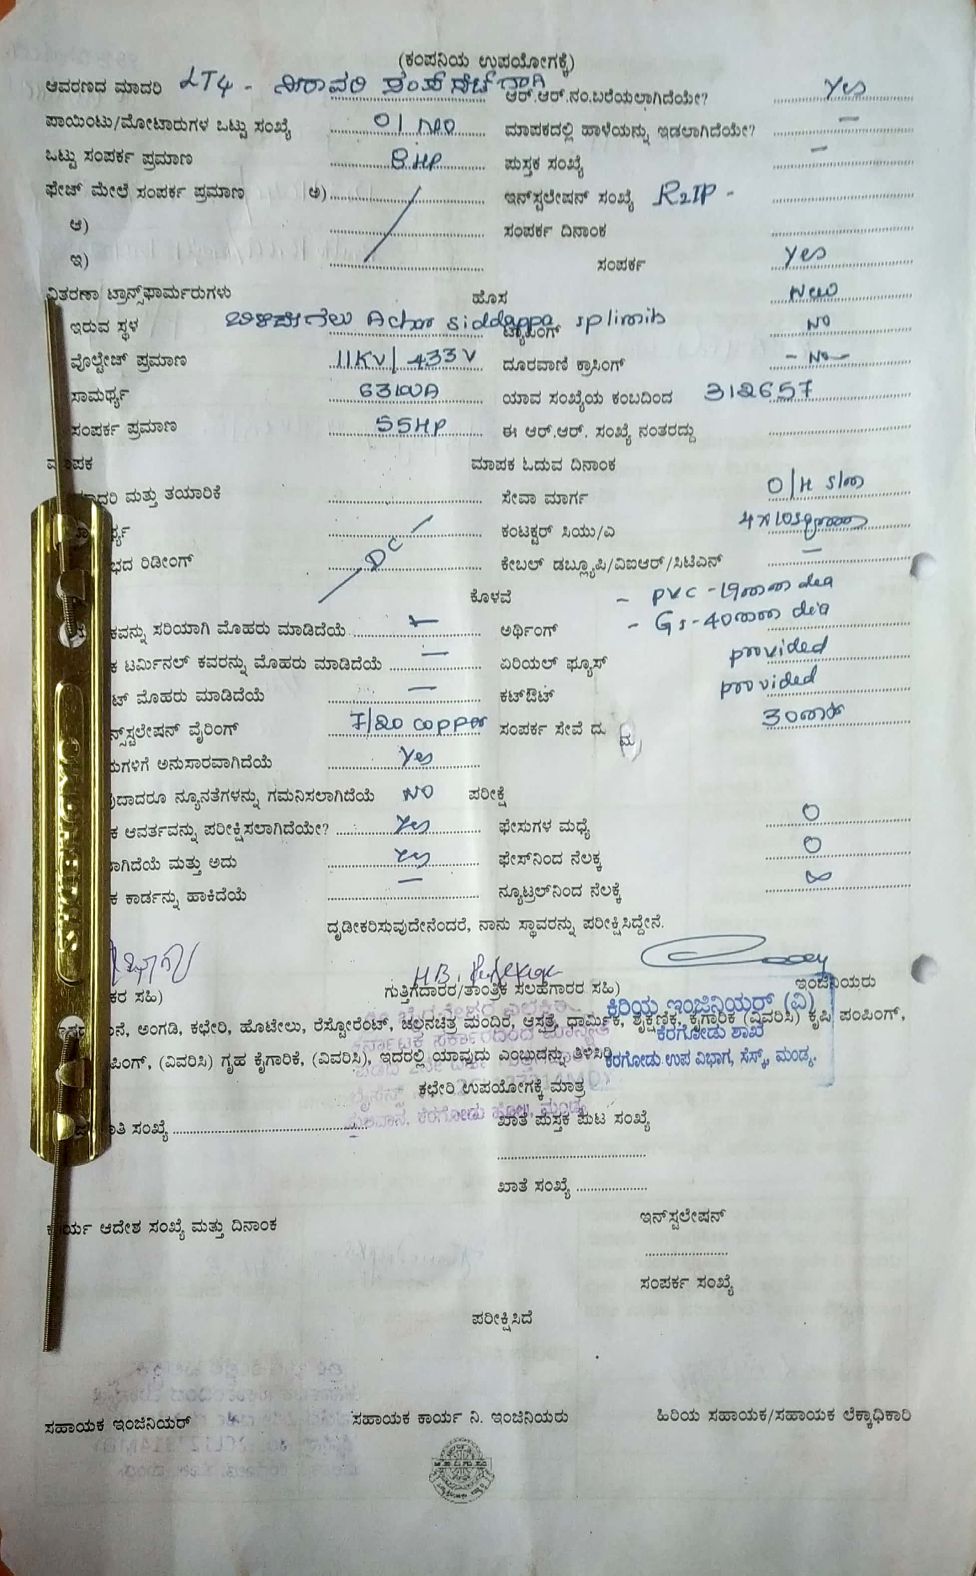 (ಕಂಪನಿಯ ಉಪಯೋಗಕ್ಕೆ)
ಆವರಣದ ಮಾದರಿ LT4 - ನೀರಾವರಿ ಪಂಪ್ ಸೆಟ್‌ಗಾಗಿ ಆರ್.ಆರ್.ನಂ.ಬರೆಯಲಾಗಿದೆಯೇ? Yes
ಪಾಯಿಂಟು/ಮೋಟಾರುಗಳ ಒಟ್ಟು ಸಂಖ್ಯೆ 01 no ಮಾಪಕದಲ್ಲಿ ಹಾಳೆಯನ್ನು ಇಡಲಾಗಿದೆಯೇ? —
ಒಟ್ಟು ಸಂಪರ್ಕ ಪ್ರಮಾಣ 8 HP ಪುಸ್ತಕ ಸಂಖ್ಯೆ —
ಫೇಜ್ ಮೇಲೆ ಸಂಪರ್ಕ ಪ್ರಮಾಣ ಅ) ಇನ್‌ಸ್ಟಲೇಷನ್ ಸಂಖ್ಯೆ
ಆ) ಸಂಪರ್ಕ ದಿನಾಂಕ
ಇ) ಸಂಪರ್ಕ Yes
ವಿತರಣಾ ಟ್ರಾನ್ಸ್‌ಫಾರ್ಮರುಗಳು ಹೊಸ New
ಇರುವ ಸ್ಥಳ siddappa ಟ್ಯಾಪಿಂಗ್ NO
ವೋಲ್ಟೇಜ್ ಪ್ರಮಾಣ 11KV/433V ದೂರವಾಣಿ ಕ್ರಾಸಿಂಗ್ - No -
ಸಾಮರ್ಥ್ಯ 63 KVA ಯಾವ ಸಂಖ್ಯೆಯ ಕಂಬದಿಂದ 312657
ಸಂಪರ್ಕ ಪ್ರಮಾಣ 55HP ಈ ಆರ್.ಆರ್. ಸಂಖ್ಯೆ ನಂತರದ್ದು
ಮಾಪಕ ಓದುವ ದಿನಾಂಕ
ಮತ್ತು ತಯಾರಿಕೆ ಸೇವಾ ಮಾರ್ಗ O/H
ಕಂಟಕ್ಟರ್ ಸಿಯು/ಎ
ರಿಡೀಂಗ್ DC ಕೇಬಲ್ ಡಬ್ಲ್ಯೂಪಿ/ವಿಐಆರ್/ಸಿಟಿಎನ್ —
ಕೊಳವೆ - PVC - 19mm dia
ಸರಿಯಾಗಿ ಮೊಹರು ಮಾಡಿದೆಯೆ — ಅರ್ಥಿಂಗ್ - GI - 40mm dia
ಟರ್ಮಿನಲ್ ಕವರನ್ನು ಮೊಹರು ಮಾಡಿದೆಯೆ — ಏರಿಯಲ್ ಫ್ಯೂಸ್ provided
ಮೊಹರು ಮಾಡಿದೆಯೆ — ಕಟ್‌ಔಟ್ provided
ವೈರಿಂಗ್ 7/20 copper ಸಂಪರ್ಕ ಸೇವೆ ದೂ
ಅನುಸಾರವಾಗಿದೆಯೆ Yes
ನ್ಯೂನತೆಗಳನ್ನು ಗಮನಿಸಲಾಗಿದೆಯೆ NO ಪರೀಕ್ಷೆ
ಆವರ್ತವನ್ನು ಪರೀಕ್ಷಿಸಲಾಗಿದೆಯೇ? Yes ಫೇಸುಗಳ ಮಧ್ಯೆ 0
ಮತ್ತು ಅದು Yes ಫೇಸ್‌ನಿಂದ ನೆಲಕ್ಕ 0
ಕಾರ್ಡನ್ನು ಹಾಕಿದೆಯೆ — ನ್ಯೂಟ್ರಲ್‌ನಿಂದ ನೆಲಕ್ಕೆ ∞
ದೃಢೀಕರಿಸುವುದೇನೆಂದರೆ, ನಾನು ಸ್ಥಾವರನ್ನು ಪರೀಕ್ಷಿಸಿದ್ದೇನೆ.
ಸಹಿ) ಗುತ್ತಿಗೆದಾರರ/ತಾಂತ್ರಿಕ ಸಲಹೆಗಾರರ ಸಹಿ) ಇಂಜಿನಿಯರು
ಕಿರಿಯ ಇಂಜಿನಿಯರ್ (ವಿ)
ಅಂಗಡಿ, ಕಛೇರಿ, ಹೊಟೇಲು, ರೆಸ್ಟೋರೆಂಟ್, ಚಲನಚಿತ್ರ ಮಂದಿರ, ಆಸ್ಪತ್ರೆ, ಧಾರ್ಮಿಕ, ಶೈಕ್ಷಣಿಕ, ಕೈಗಾರಿಕೆ (ವಿವರಿಸಿ) ಕೃಷಿ ಪಂಪಿಂಗ್,
ಕೆರಗೋಡು ಶಾಖೆ
(ವಿವರಿಸಿ) ಗೃಹ ಕೈಗಾರಿಕೆ, (ವಿವರಿಸಿ), ಇದರಲ್ಲಿ ಯಾವುದು ಎಂಬುದನ್ನು ತಿಳಿಸಿರಿ.
ಕೆರಗೋಡು ಉಪ ವಿಭಾಗ, ಸೆಸ್ಕ್, ಮಂಡ್ಯ.
ಕಛೇರಿ ಉಪಯೋಗಕ್ಕೆ ಮಾತ್ರ
ಸಂಖ್ಯೆ ಖಾತೆ ಪುಸ್ತಕ ಪುಟ ಸಂಖ್ಯೆ
ಖಾತೆ ಸಂಖ್ಯೆ
ಕಾರ್ಯ ಆದೇಶ ಸಂಖ್ಯೆ ಮತ್ತು ದಿನಾಂಕ ಇನ್‌ಸ್ಟಲೇಷನ್
ಸಂಪರ್ಕ ಸಂಖ್ಯೆ
ಪರೀಕ್ಷಿಸಿದೆ
ಸಹಾಯಕ ಇಂಜಿನಿಯರ್ ಸಹಾಯಕ ಕಾರ್ಯ ನಿ. ಇಂಜಿನಿಯರು ಹಿರಿಯ ಸಹಾಯಕ/ಸಹಾಯಕ ಲೆಕ್ಕಾಧಿಕಾರಿ